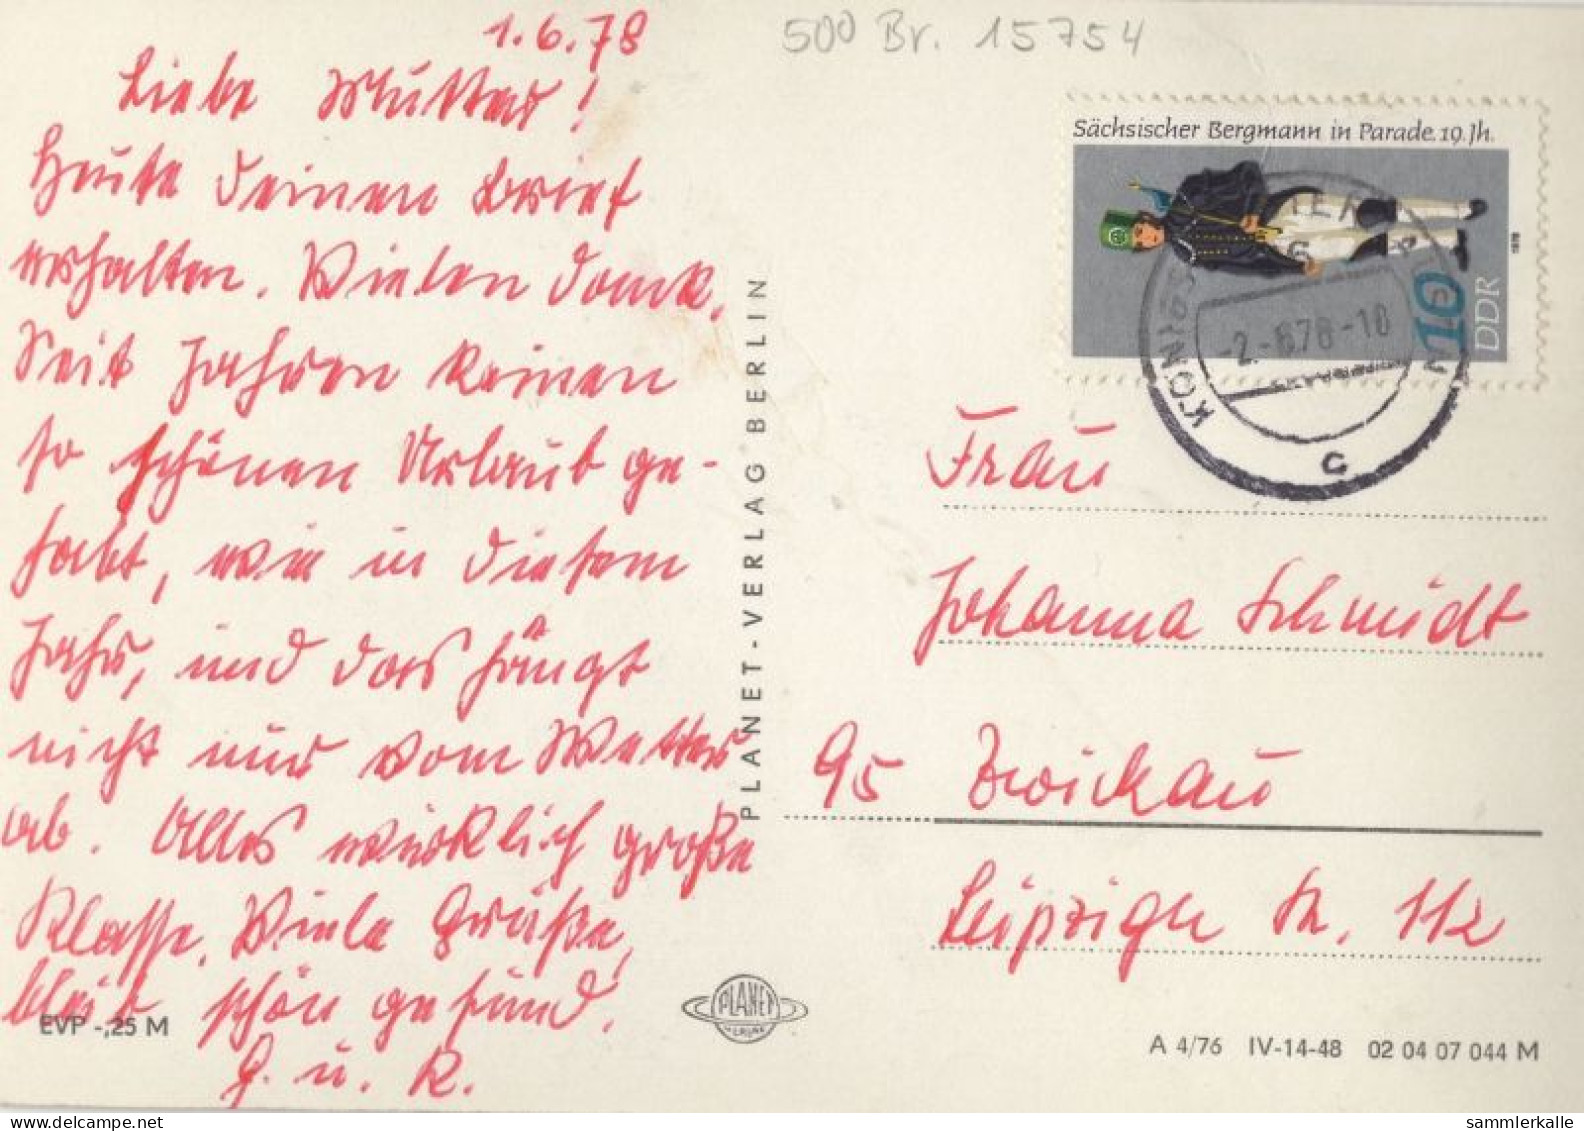 1.6.78
Liebe Mutter!
Heute deinen Brief
erhalten. Vielen Dank.
Seit Jahren keinen
so schönen Urlaub ge-
habt, wie in diesem
Jahr, und das hängt
nicht nur vom Wetter
ab. Alles wirklich große
Klasse. Viele Grüße,
bleib schön gesund.
G. u. K.
EVP -,25 M
PLANET-VERLAG BERLIN
PLANET
500 Br. 15754
Sächsischer Bergmann in Parade. 19. Jh.
1978
10
DDR
-2.-678-18
C
Frau
Johanna Schmidt
95 Zwickau
Leipziger Str. 112
A 4/76 IV-14-48 02 04 07 044 M
sammlerkalle
www.delcampe.net